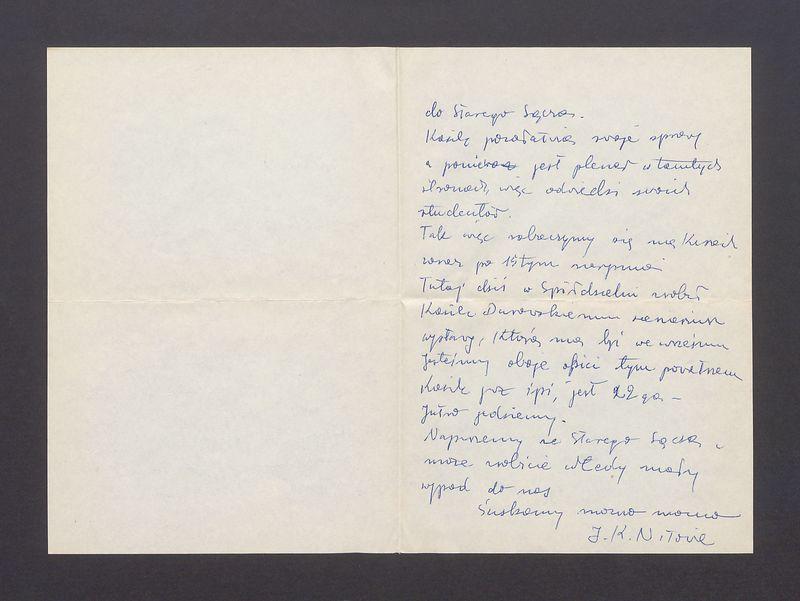 do Starego Sącza.
Kazik pozałatwia swoje sprawy
a ponieważ jest plener w tamtych
stronach, więc odwiedzi swoich
studentów.
Tak więc zobaczymy się na
zaraz po 15tym sierpnia
Tutaj dziś w Spółdzielni zrobił
Kazik scenariusz
wystawy, która ma być we wrześniu
Jesteśmy oboje tym
Kazik już śpi, jest 22ga –
Jutro jedziemy.
Napiszemy ze Starego Sącza i
może zrobicie wtedy mały
wypad do nas
Ściskamy mocno mocno
J. K. N